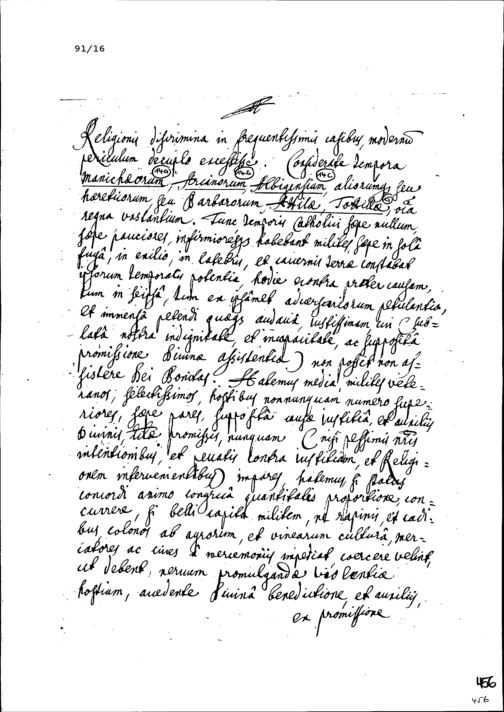 91/16
Religionis discrimina in frequentissimis casibus modernū
periculum decuplo excessisse. Considerate tempora
Manichaeorum, Arianorum, Albigensium, aliorumqs seu
haereticorum seu Barbarorum, Attilæ, Totilæ, oīa
regna vastantium. Tunc temporis Catholici sæpe nullum,
sæpe pauciores, infirmioresqs habebant milites sæpe in solâ
fugâ, in exilio, in latebris, et cavernis terræ constabat
ipsorum temporalis potentia, hodie econtra præter causam,
tum in seipsâ, tum ex ipsâmet adversariorum petulantia,
et immensâ petendi quæqs audaciâ, iustissimam cui (sub=
latâ nostrâ indignitate et incapacitate, ac suppositâ
promissione Divinæ assistentiæ) non possit non as=
sistere Dei Bonitas. Habemus media, milites vete=
ranos, selectissimos, hostibus nonnunquam numero supe=
riores, sæpe pares, suppositâ causæ iustitiâ, et auxiliis
Divinis, rite promissis, nunquam (nisi pessimis nr̄is
intentionibus, et peccatis contra iustitiam, et Religi=
onem intervenientibus) impares, habemus, si status
concordi animo congruâ quantitatis proportione, con=
currere, si belli capita militem, ne rapinis, et cædi=
bus, colonos ab agrorum, et vinearum culturâ, mer=
catores ac cives à mercimoniis impediat coercere velint,
ut debent, nervum promulgandæ violentiæ
hostium, accedente Divinâ benedictione et auxiliis,
ex promissione
456
456